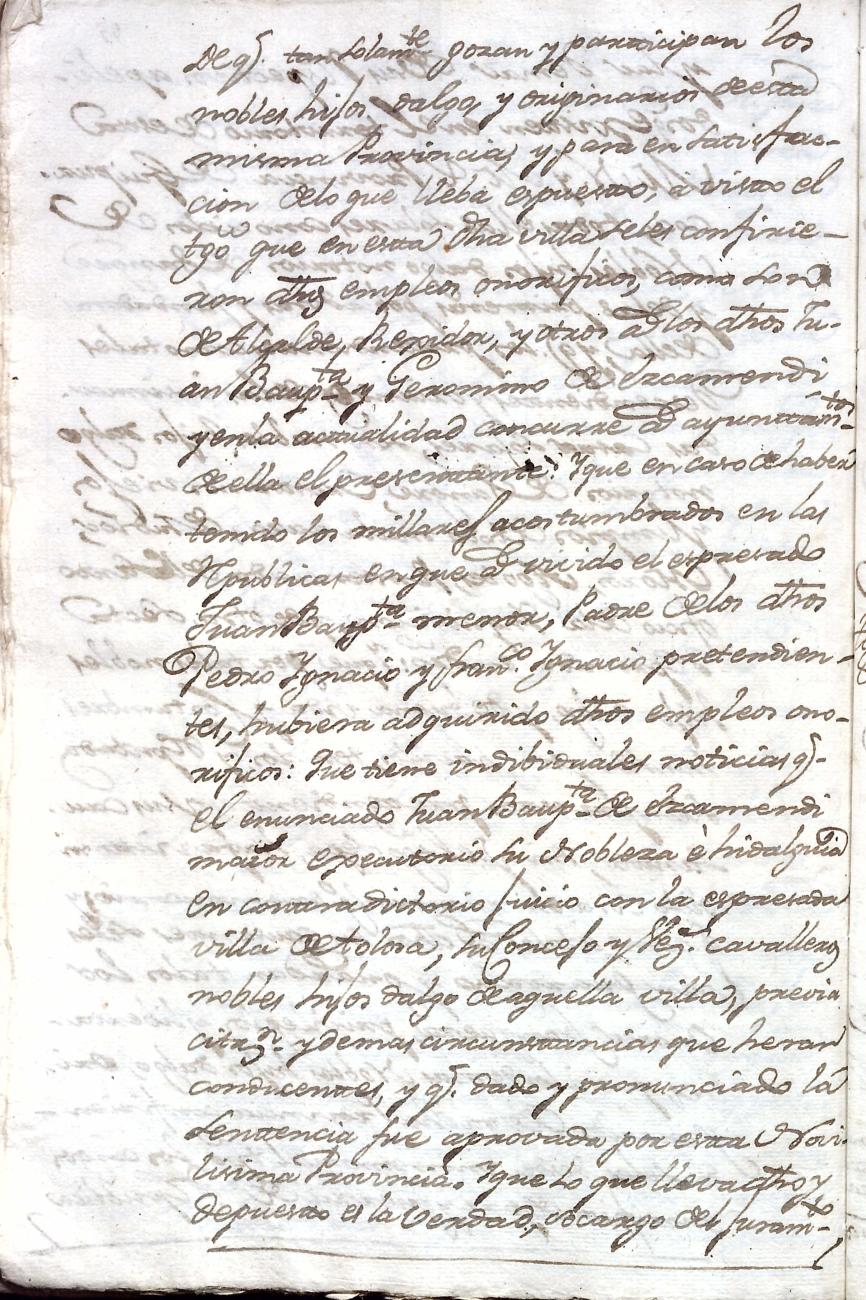 de q.e tan solam.te gozan y participan los
nobles hijos dalgo, y originarios de esta
misma Provincia, y para en satisfac-
cion de lo que lleba espuesto, á visto el
tgô que en esta dha villa seles confirie-
ron dhos empleos onorificos, como son
de Alcalde, Rexidor, y otros ad los dhos Ju-
an Baup.ta y Geronimo de Urcamendi
y en la actualidad concurre ad ayuntam.tos
de ella el presentante: Y que en caso de haber
tenido los millares acostumbrados en las
Republicas en que ad vivido el espresado
Juan Baup.ta menor, Padre de los dhos
Pedro Ygnacio y fran.co Ygnacio pretendien-
tes, hubiera adquirido dhos empleos ono-
rificos: Que tiene indibiduales noticias q.e
el enunciado Juan Baup.ta de Urcamendi
maior executorio su Nobleza è hidalguia
en contradictorio Juicio con la espresada
villa de tolosa, su Concejo y Vez.s cavalleros
nobles hijos dalgo de aquella villa, previa
citaz.n y demas circunstancias que heran
conducentes, y q.e dado y pronunciado la
sentencia fue aprovada por esta Novi-
lisima Provincia. Y que lo que lleva dho y
depuesto es la verdad, socargo del juram.to